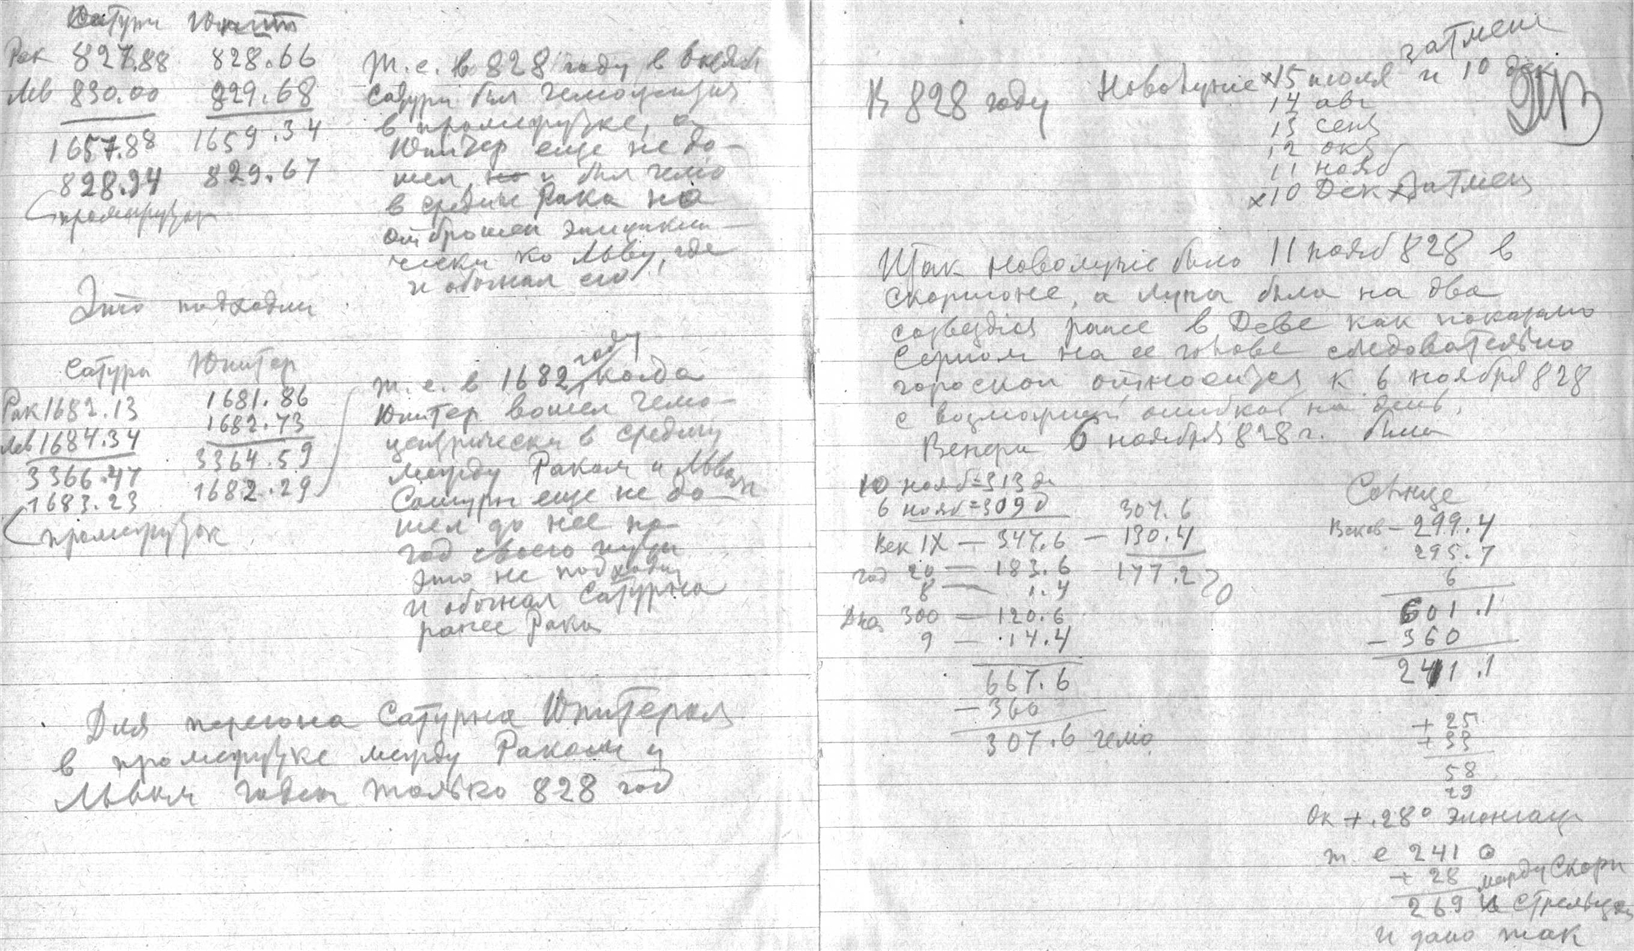 Сатурн Юпит
Рак 827.88 828.66
Лев 830.00 829.68
1657.88 1659.34
828.94 829.67
промежуток
т. е. в 828 году в
Сатурн был гелиоцентрич
в промежутке, а
Юпитер еще не до-
шел, но и был гелио
в средине Рака но
отброшен эпицикли-
чески ко Льву, где
и обогнал его
Это подходит
Сатурн Юпитер
Рак 1682.13 1681.86
Лев 1684.34 1682.73
3366.47 3364.59
1683.23 1682.29
промежуток
т. е. в 1682 году, когда
Юпитер вошел гелио-
центрически в средину
между Раком и Львом
Сатурн еще не до-
шел до нее на
год своего пути
это не подходит
и обогнал Сатурна
ранее Рака
Для перегона Сатурна Юпитером
в промежутке между Раком и
Львом годен только 828 год
В 828 году Новолуние ×15 июля и 10 дек
затмен
14 авг
13 сент
12 окт
11 нояб
×10 Дек × Затмен
Итак новолуние было 11 нояб 828 в
Скорпионе, а луна была на два
созвездия ранее в Деве как показано
Серпом на ее голове следовательно
гороскоп относится к 6 ноября 828
с возможной ошибкой на день.
Венера 6 ноября 828 г. была
10 нояб = 313 д
6 нояб = 309 д
Век IX — 347.6
год 20 — 183.6
8 — 1.4
Дни 300 — 120.6
9 — 14.4
667.6
— 360
307.6 гелио
307.6
— 130.4
177.2
Солнце
Веков — 299.4
295.7
6
601.1
— 360
241.1
+ 25
+ 33
58
29
Ок +.28° Элонгац
т. е 241
+ 28 между Скорп
269 и Стрельцом
и дано так